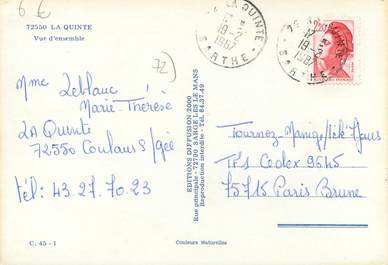 6 €
72550 LA QUINTE
Vue d'ensemble
72)
Mme Leblanc
Marie-Thérèse
LA Quinte
72550 Coulans s/gée
tél: 43.27.70.23
C. 45 - 1
EDITIONS DIFFUSION 2000
Rue principale - 72190 SARGE LES LE MANS
Reproduction interdite - Tél. 84.37.49
Couleurs Naturelles
LA QUINTE
19-2
1987
SARTHE
LA QUINTE
19-2
1987
SARTHE
Tournez-Manège
TF1 Cedex 9545
75715 Paris Brune